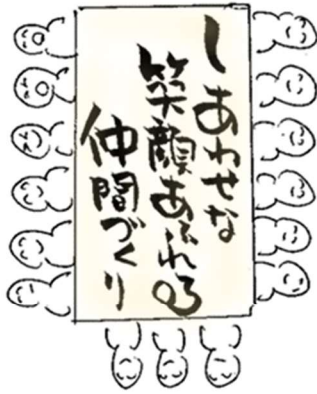 しあわせな
笑顔あふれる
仲間づくり